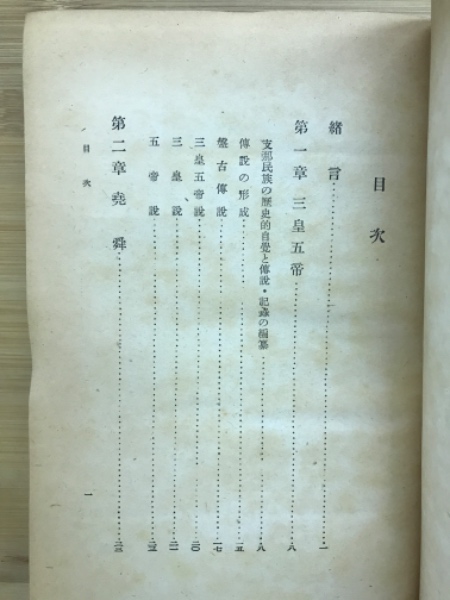 目次
緒言……一
第一章 三皇五帝……八
支那民族の歴史的自覺と傳說・記錄の編纂……八
傳說の形成……一五
盤古傳說……一七
三皇五帝說……二〇
三皇說……二一
五帝說
第二章 堯舜
目次
一